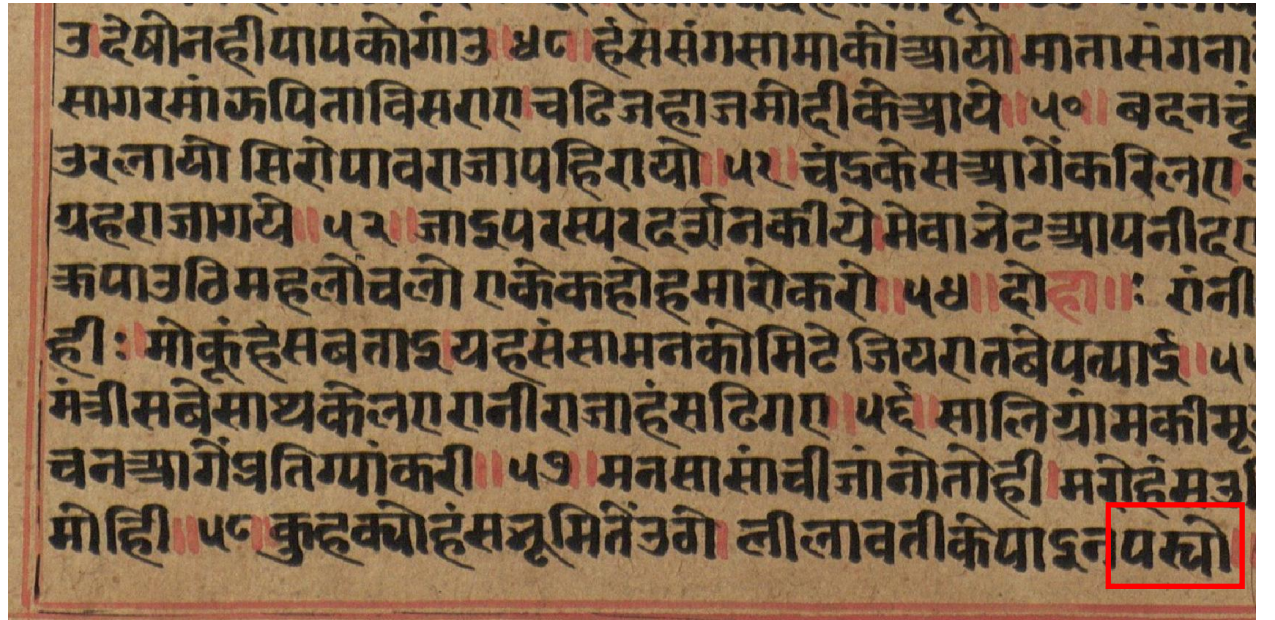 उदेषोनहीपापकोगाउ॥४८॥हंससंगसामाकींआयो।मातासंगना
सागरमांऊपिताविसराए।चटिजहाजमोदीकेआये॥५०॥ बदनचूं
उरलायो सिरोपावराजापहिरायो॥५१॥ चंद्रकेसआगेंकरिलए।
ग्रहराजागये॥५२॥जाइपरस्परदर्शनकीये।मेवाभेटआपनीद
क्रपाउठिमहलौचलो एकेकहोहमारोकरो॥५४॥दोहा॥: रांनी
ही:॥मोकूंहंसबताइ।यहसंसामनकोमिटे जियरातबेपत्याई॥५५
मंत्रीसबेसाथकेलए रानीराजाहंसटिगए॥५६॥सालिग्रांमकीमू
चनआगेंप्रतिग्यांकरी॥५७॥मनसासांचीजांनोतोही।मरोहंसउ
मोहि॥५८॥कुहक्योहंसभूमितेंउगे। लीलावतीकेपाइनपर्‍यो